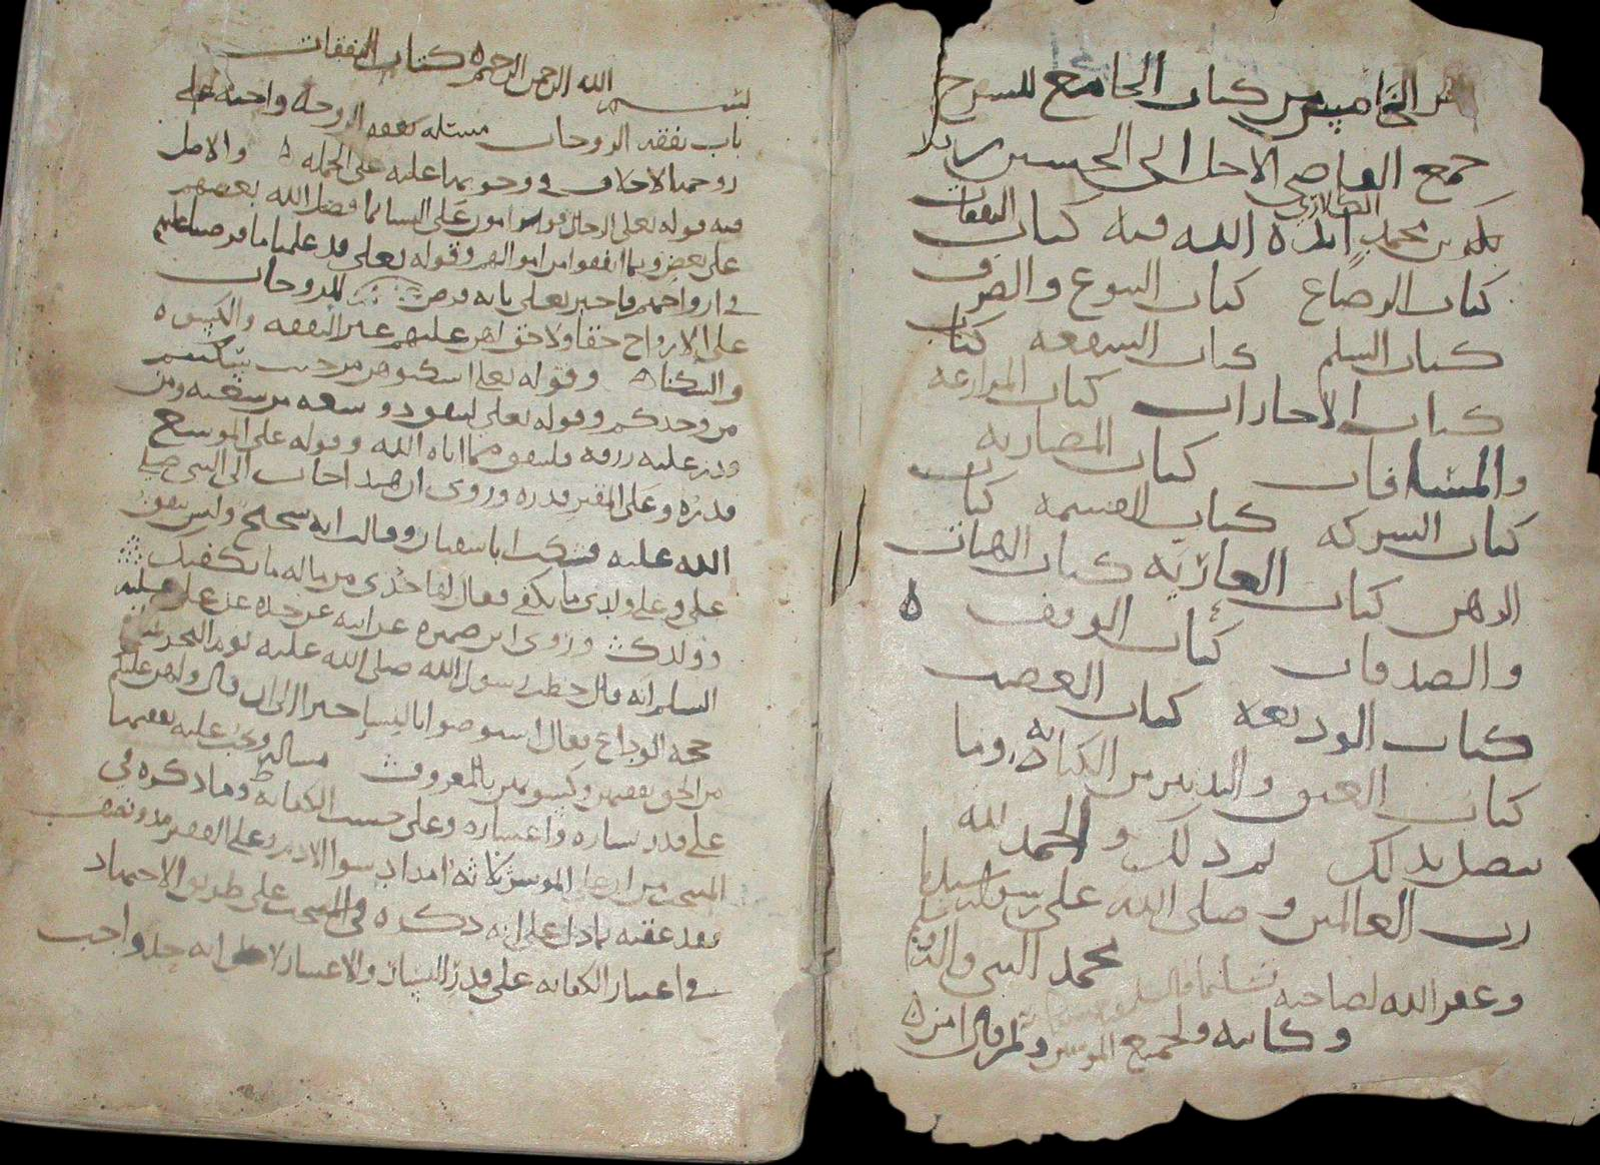 الخامس من كتاب الجامع للشرح
جمع القاضي الاجل ابي الحسين زيد
الكلاري
بن محمد ايده الله فيه كتاب النفقات
كتاب الرضاع كتاب البيوع والصرف
كتاب السلم كتاب الشفعه كتاب
كتاب الاجارات كتاب المزارعه
والمساقات كتاب المضاربه
كتاب الشركه كتاب القسمه كتاب
الرهن كتاب العاريه كتاب الهبات
والصدقات كتاب الوقف ه
كتاب الوديعه كتاب الغصب
كتاب العتق والتدبير من الكتابه وما
يتصل بذلك تم ذلك والحمد لله
رب العالمين وصلى الله على رسوله سيدنا
محمد النبي واله
وغفر الله لصاحبه
وكاتبه ولجميع المومنين ولمن قال امين ه
بسم الله الرحمن الرحيم ه كتاب النفقات
باب نفقه الزوجات مسئله نفقه الزوجه واجبه على
زوجها لا خلاف في وجوبها عليه على الجمله ه والاصل
فيه قوله تعلى الرجال قوامون على النسا بما فضل الله بعضهم
على بعض وبما انفقوا من اموالهم وقوله تعلى قد علمنا ما فرضنا عليهم
في ازواجهم فاخبر تعلى بانه فرض للزوجات
على الازواج حقا ولا حق لهن عليهم غير النفقه والكسوه
والسكنا ه وقوله تعلى اسكنوهن من حيث سكنتم
من وجدكم وقوله تعلى لينفق ذو سعه من سعته ومن
قدر عليه رزقه فلينفق مما اتاه الله وقوله على الموسع
قدره وعلى المقتر قدره وروي ان هند اجات الى النبي صلى
الله عليه فشكت ابا سفيان وقالت انه شحيح وليس ينفق
علي وعلى ولدي ما يكفي فقال لها خذي من ماله ما يكفيك
وولدك وروى ابن ضميره عن ابيه عن جده عن علي عليه
السلم انه قال خطب رسول الله صلى الله عليه يوم النحر
حجه الوداع فقال استوصوا بالنسا خيرا الى ان قال ولهن عليكم
من الحق نفقتهن وكسوتهن بالمعروف مساله وتجب عليه نفقتها
على قدر يساره واعساره وعلى حسب الكفايه وما ذكره في
المنتخب من ان على الموسر ثلاثه امداد سوا الادم وعلى الفقير مد ونصف
فقد عقبه بما دل على انه ذكره في المنتخب على طريق الاجتهاد
في اعتبار الكفايه على قدر اليسار والاعسار لا على انه حد واجب